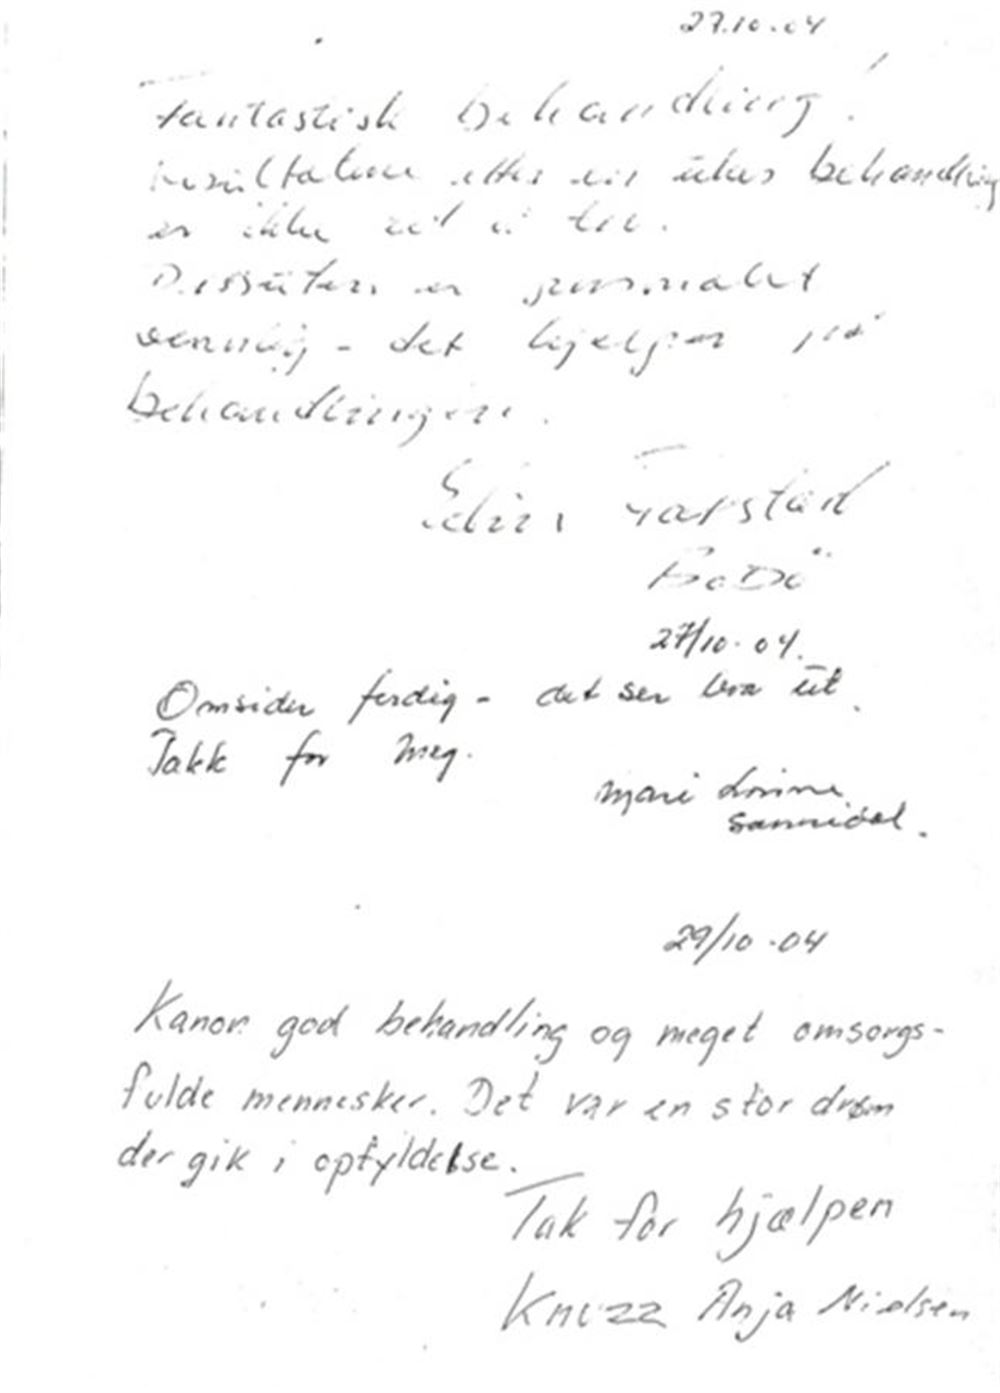 27.10.04
Fantastisk behandling!
Resultatene etter en ukes behandling
er ikke til å tro.
Dessuten er personalet
vennlig - det hjelper på
behandlingen.
Farstad
BoDö
27/10.04.
Omsider ferdig - det ser bra ut.
Takk for meg.
Mari
Sannidal.
29/10.04
Kanon god behandling og meget omsorgs-
fulde mennesker. Det var en stor drøm
der gik i opfyldelse.
Tak for hjælpen
Knuzz Anja Nielsen